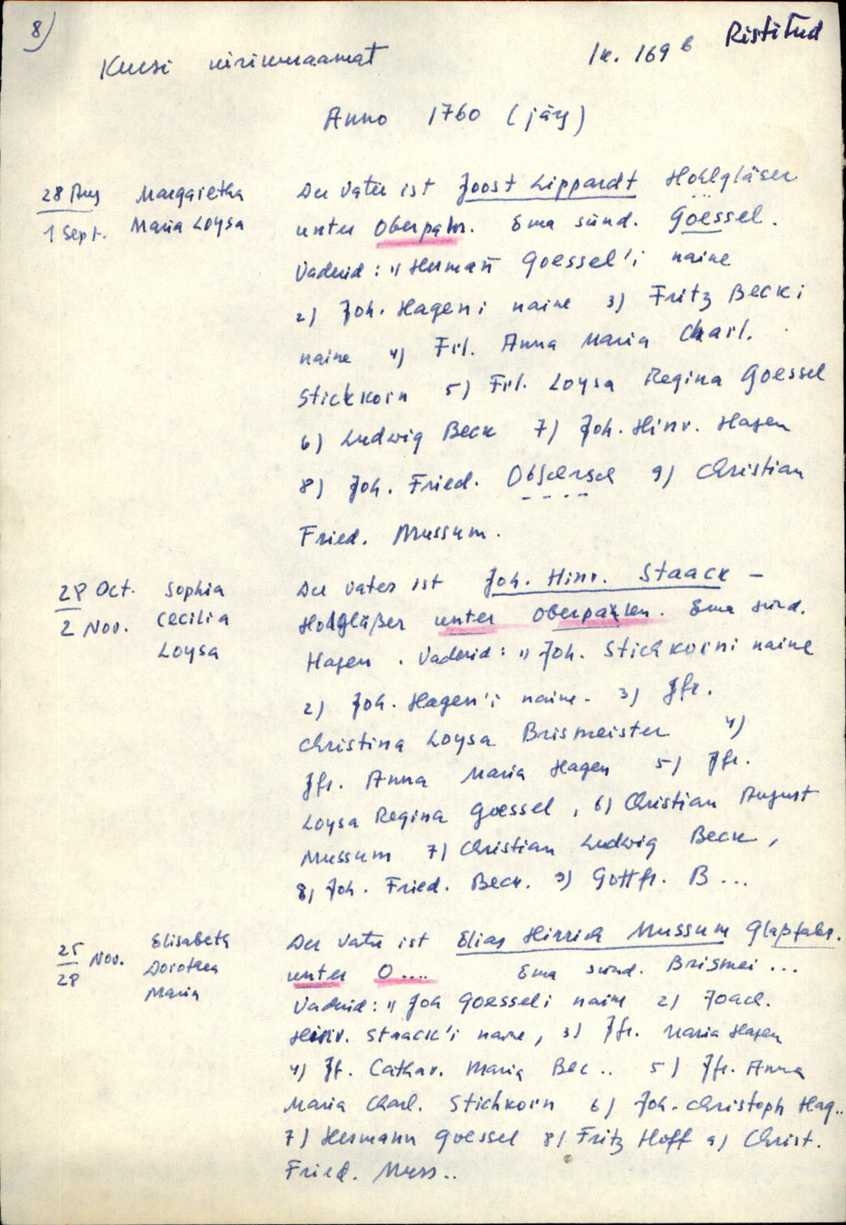 8)
Kursi kirikuraamat lk. 169 b Ristitud
Anno 1760 (järg)
28 Aug Margaretha Der Vater ist Joost Lippardt Hohlgläser
1 Sept. Maria Loysa unter Oberpahr. Ema sünd. Goessel.
Vaderid: 1) Hermañ Goessel'i naine
2) Joh. Hageni naine 3) Fritz Becki
naine 4) Frl. Anna Maria Charl.
Stickkorn 5) Frl. Loysa Regina Goessel
6) Ludwig Beck 7) Joh. Hinr. Hagen
8) Joh. Fried. 9) Christian
Fried. Mussum.
28 Oct. Sophia Der Vater ist Joh. Hinr. Staack –
2 Nov. Cecilia Holgläßer unter Oberpahlen. Ema sünd.
Loysa Hagen. Vaderid: 1) Joh. Stichkorni naine
2) Joh. Hagen'i naine. 3) Jfr.
Christina Loysa Brismeister 4)
Jfr. Anna Maria Hagen 5) Jfr.
Loysa Regina Goessel, 6) Christian August
Mussum 7) Christian Ludwig Beck,
8) Joh. Fried. Beck. 9) Gottfr. B...
25 Nov. Elisabeth Der Vater ist Elias Hinrich Mussum Glaßfabr.
28 Dorothea unter O.... Ema sünd. Brismei...
Maria Vaderid: 1) Joh Goesseli naine 2) Joach.
Hinr. Staack'i naine, 3) Jfr. Maria Hagen
4) Jf. Cathar. Maria Bec.. 5) Jfr. Anna
Maria Charl. Stichkorn 6) Joh. Christoph Hag..
7) Hermann Goessel 8) Fritz Hoff 9) Christ.
Fried. Muss..